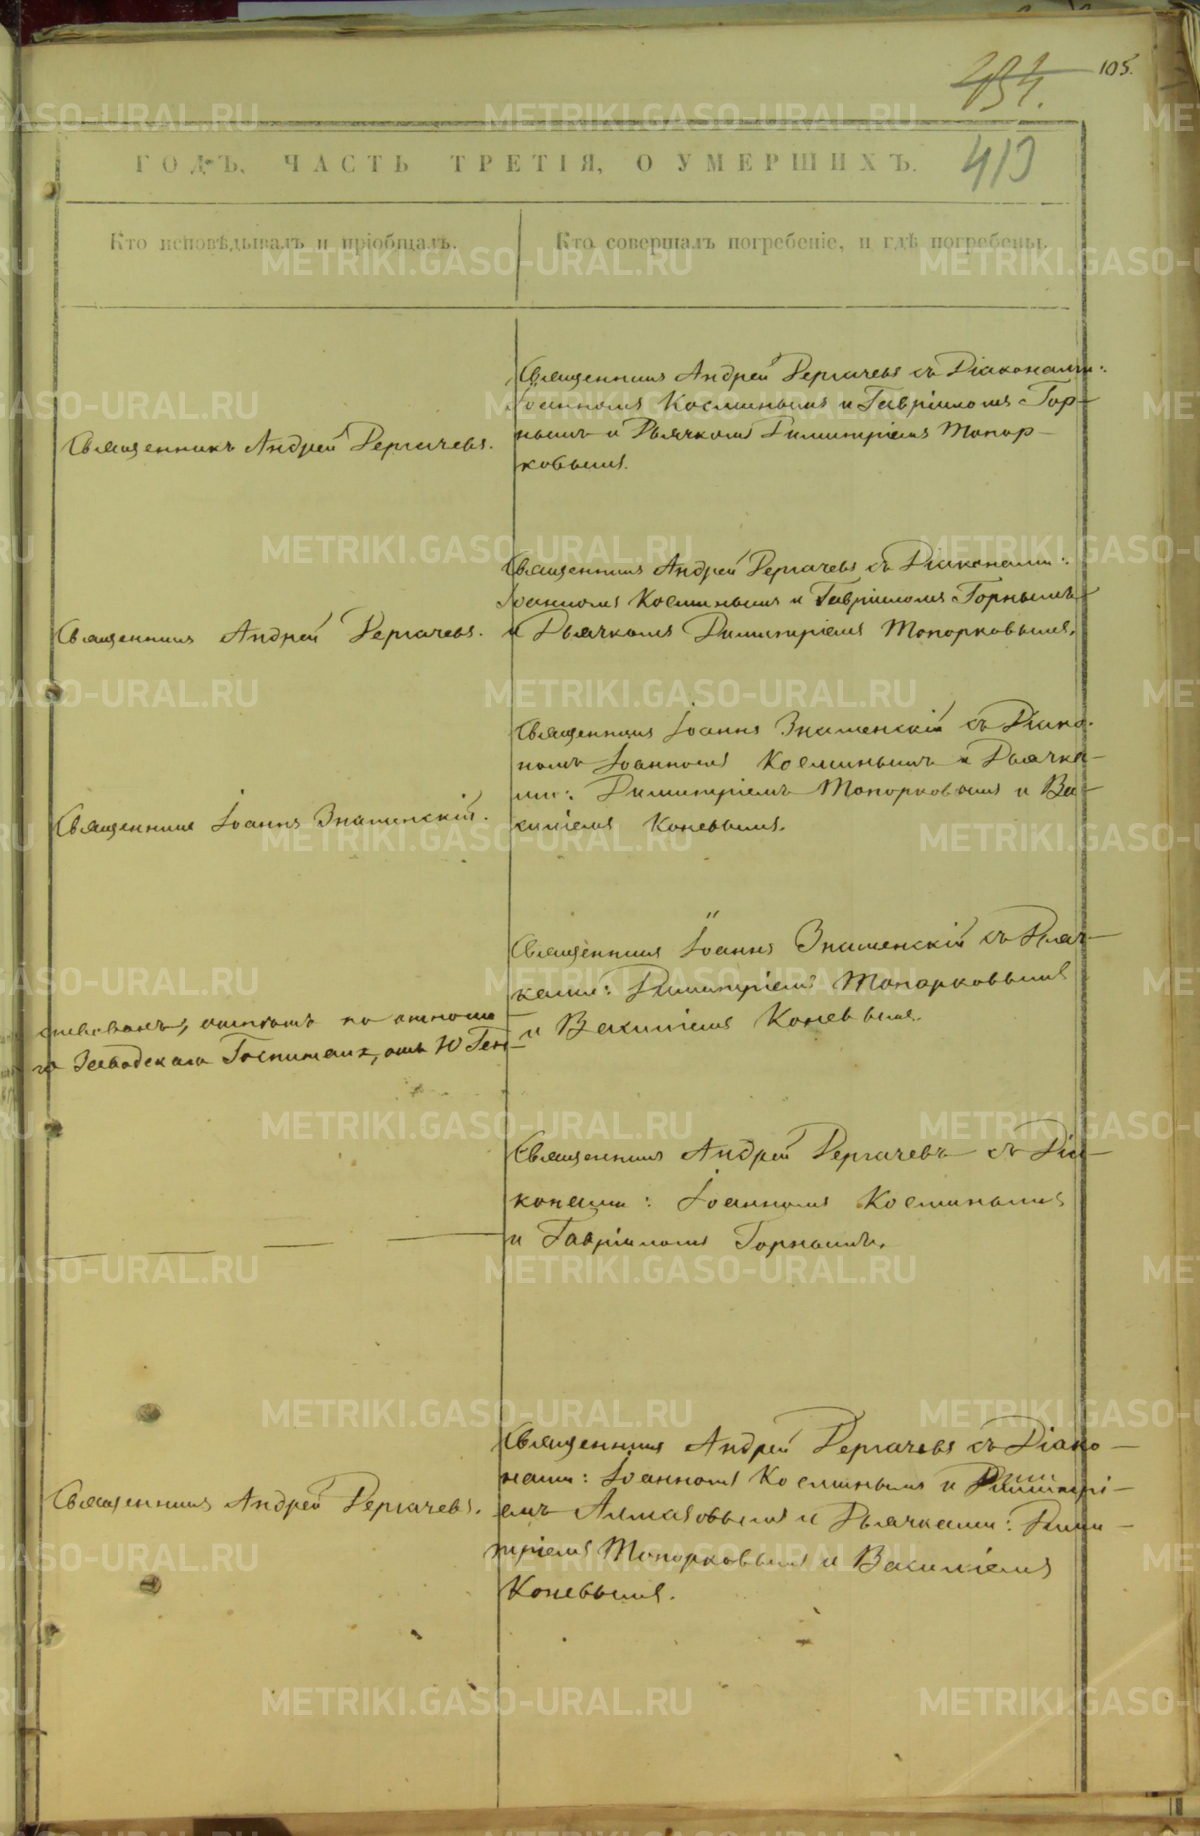 105.
434.
410
ГОДЪ, ЧАСТЬ ТРЕТІЯ, О УМЕРШИХЪ.
Кто исповѣдывалъ и пріобщалъ.
Кто совершалъ погребеніе, и гдѣ погребены.
Священникъ Андрей Дергачевъ.
Священникъ Андрей Дергачевъ съ Діаконами:
Іоанномъ Косминымъ и Гавріиломъ Гор-
нымъ и Дьячкомъ Димитріемъ Топор-
ковымъ.
Священникъ Андрей Дергачевъ.
Священникъ Андрей Дергачевъ съ Діаконами:
Іоанномъ Косминымъ и Гавріиломъ Горнымъ
и Дьячкомъ Димитріемъ Топорковымъ.
Священникъ Іоаннъ Знаменскій.
Священникъ Іоаннъ Знаменскій съ Діако-
номъ Іоанномъ Косминымъ и Дьячка-
ми: Димитріемъ Топорковымъ и Ва-
силіемъ Коневымъ.
Заводскаго Госпиталя, отъ 10 Ген-
Священникъ Іоаннъ Знаменскій съ Дьяч-
ками: Димитріемъ Топорковымъ
и Василіемъ Коневымъ.
Священникъ Андрей Дергачевъ съ Діа-
конами: Іоанномъ Косминымъ
и Гавріиломъ Горнымъ.
Священникъ Андрей Дергачевъ.
Священникъ Андрей Дергачевъ съ Діако-
нами: Іоанномъ Косминымъ и Димитрі-
емъ Алмазовымъ и Дьячками: Дими-
тріемъ Топорковымъ и Василіемъ
Коневымъ.
METRIKI.GASO-URAL.RU